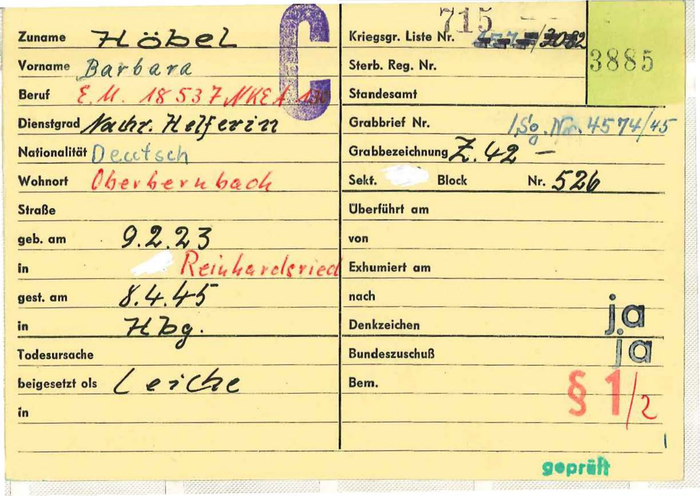 Zuname Höbel
Vorname Barbara
Beruf E.M. 18537 NKEA
Dienstgrad Nachr. Helferin
Nationalität Deutsch
Wohnort Oberbernbach
Straße
geb. am 9.2.23
in Reinhardsried
gest. am 8.4.45
in Hbg.
Todesursache
beigesetzt als Leiche
in
C
715
Kriegsgr. Liste Nr. /3082
3885
Sterb. Reg. Nr.
Standesamt
Grabbrief Nr. 4574/45
Grabbezeichnung Z. 42 –
Sekt. Block Nr. 526
Überführt am
von
Exhumiert am
nach
Denkzeichen ja
Bundeszuschuß ja
Bem. § 1/2
geprüft